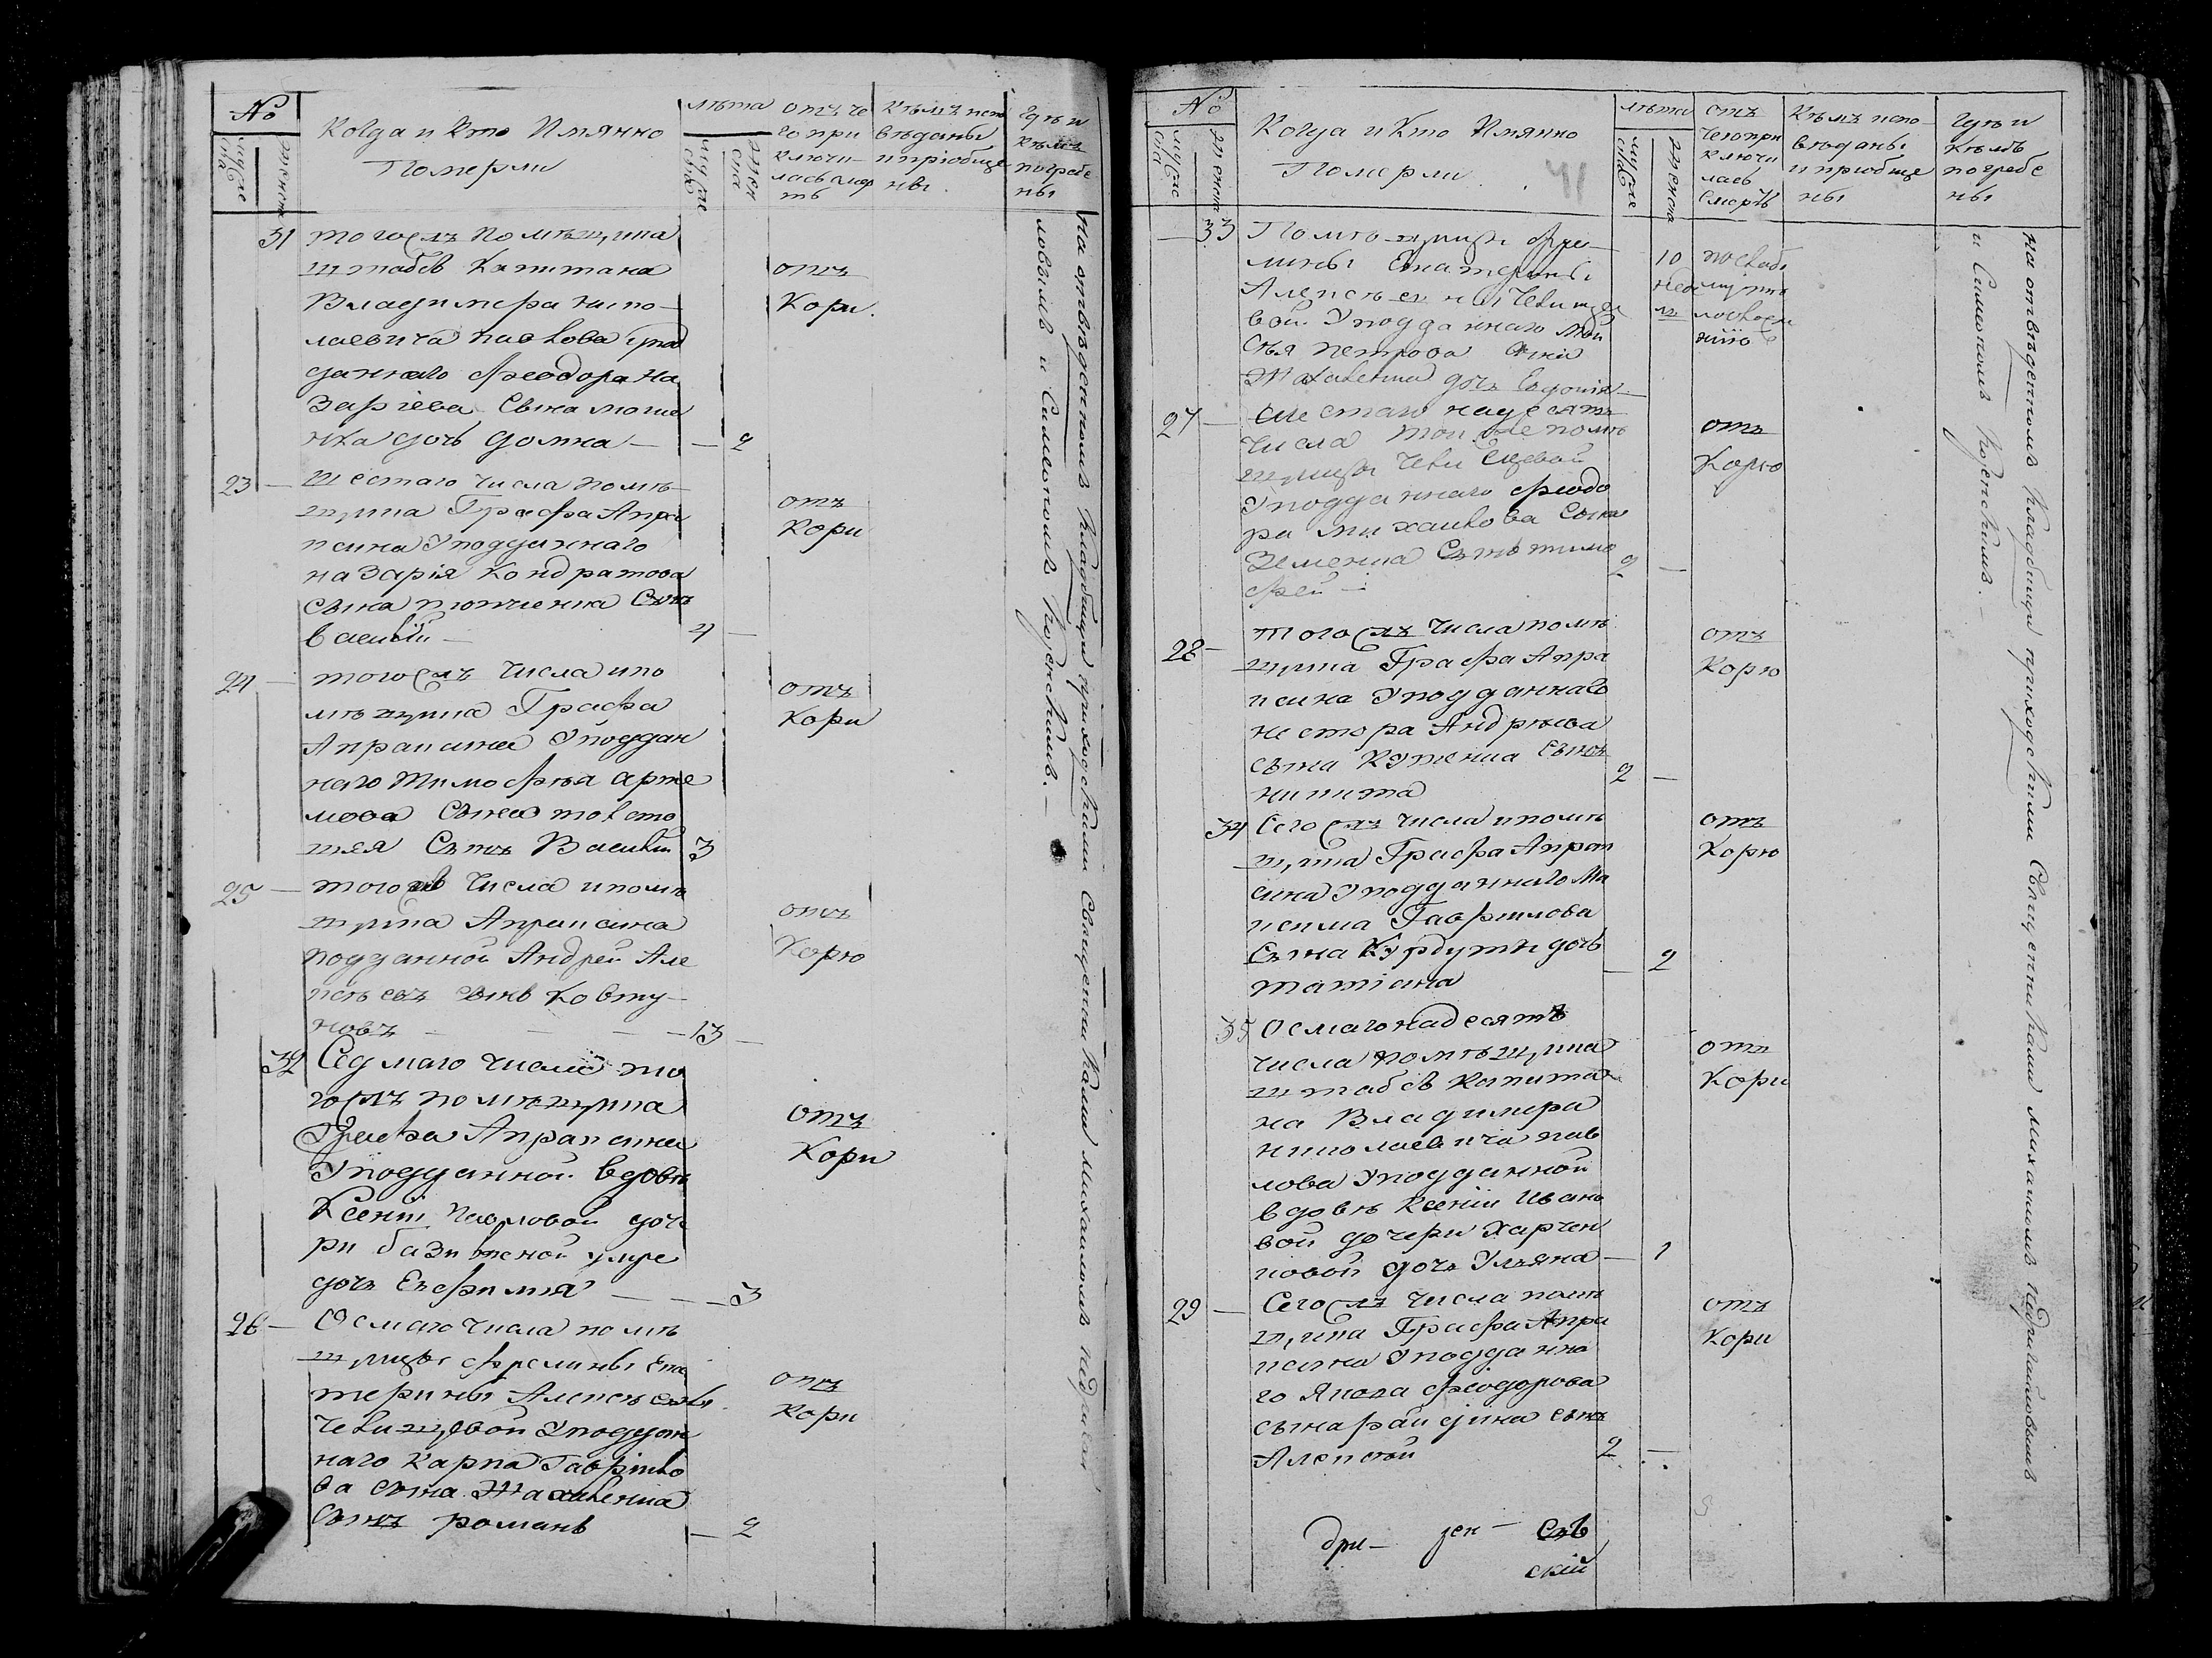 №
муже
ска
женска
Когда и Кто Имянно
Померли
лѣта
муже
ска
жен
ска
отъ че
го при
ключи-
лась смер
ть
Кѣмъ испо
вѣданы
и прiобще
ны
Гдѣ и
Кѣмъ
погребе
ны
31
тогожъ помѣщика
штабсъ Капитана
Владимера Нико-
лаевича Павлова
даннаго Феодора На
зарiева Сына
дочь домна — — 2
отъ
Кори.
23 —
шестаго Числа помѣ-
щика Графа Апра
ксина Уподданнаго
назарiя Кондратова
сына Сынъ
василiй — 4 —
отъ
Кори
24 —
тогожъ Числа и по
мѣщика Графа
Апраксина Уподдан
наго Тимофѣя арте
мова Сына товсто
шея Сынъ Василiй 3
отъ
Кори
25 —
тогожъ Числа и помѣ
щика Апраксина
подданной Андрей Але
ксѣевъ сынъ Ковту-
новъ — — — — 13 —
отъ
Корю
32
Седмаго числа то
гожъ помѣщика
Графа Апраксина
Уподданной вдовы
Ксенiи Павловой доче
ри умре
дочь Евфимiя — — — 3
отъ
Кори
26 —
Осмаго Числа помѣ
щицы фрелины Ека
терины Алексѣевны
Чевищевой Уподдан
наго Карпа Гаврило
ва сына Жаховенка
Сынъ романъ — 2
отъ
Кори
На отвѣденномъ Кладбищи приходскими Священниками Михаиломъ
ловымъ и Симеономъ
№
муже
ска
женска
Когда и Кто Имянно
Померли
41
лѣта
муже
ска
женска
отъ
чего при
ключи
лась
Смерть
Кѣмъ испо
вѣданы
и прiобще
ны
Гдѣ и
Кѣмъ
погребе
ны
— 33
Помѣщицы фре-
лины Екатерины
Алексѣевны Чевище
вой Уподданнаго Мои
сѣя петрова сына
Жаховенка дочь Евдокiя —
10
неде
ль
27 —
шестаго надесять
Числа тойже помѣ
щицы Чевищевой
Уподданнаго феодо
ра михаилова Сына
Земенка Сынъ тимо
фей — 9 —
отъ
Корю
28 —
тогожъ Числа помѣ
щика Графа Апра
ксина Уподданнаго
нестора Андрѣева
сына Куженка Сынъ
никита 2 —
отъ
Корю
34
Сегожъ числа и помѣ
щика Графа Апрак
сина Уподданнаго Ма
ксима Гаврилова
Сына Курдути дочь
татiана — 2
отъ
Корю
35
Осмагонадесять
числа помѣщика
штабсъ Капита
на Владимера
николаевича пав
лова Уподданной
вдовы Ксенiи Ивано
вой дочери Харчен
ковой дочь Ульяна — 1
отъ
Кори
29 —
Сегожъ Числа помѣ
щика Графа Апра
ксина Уподданна
го Якова Феодорова
сына сынъ
Алексѣй 2 —
отъ
Кори
на отвѣденномъ Кладбищи приходскими Священниками михаиломъ
и Симеономъ